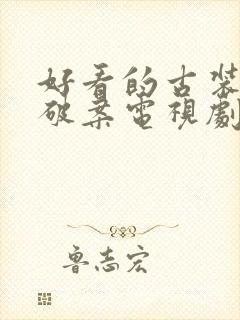 好看的古裝
破案電視劇
魯志宏